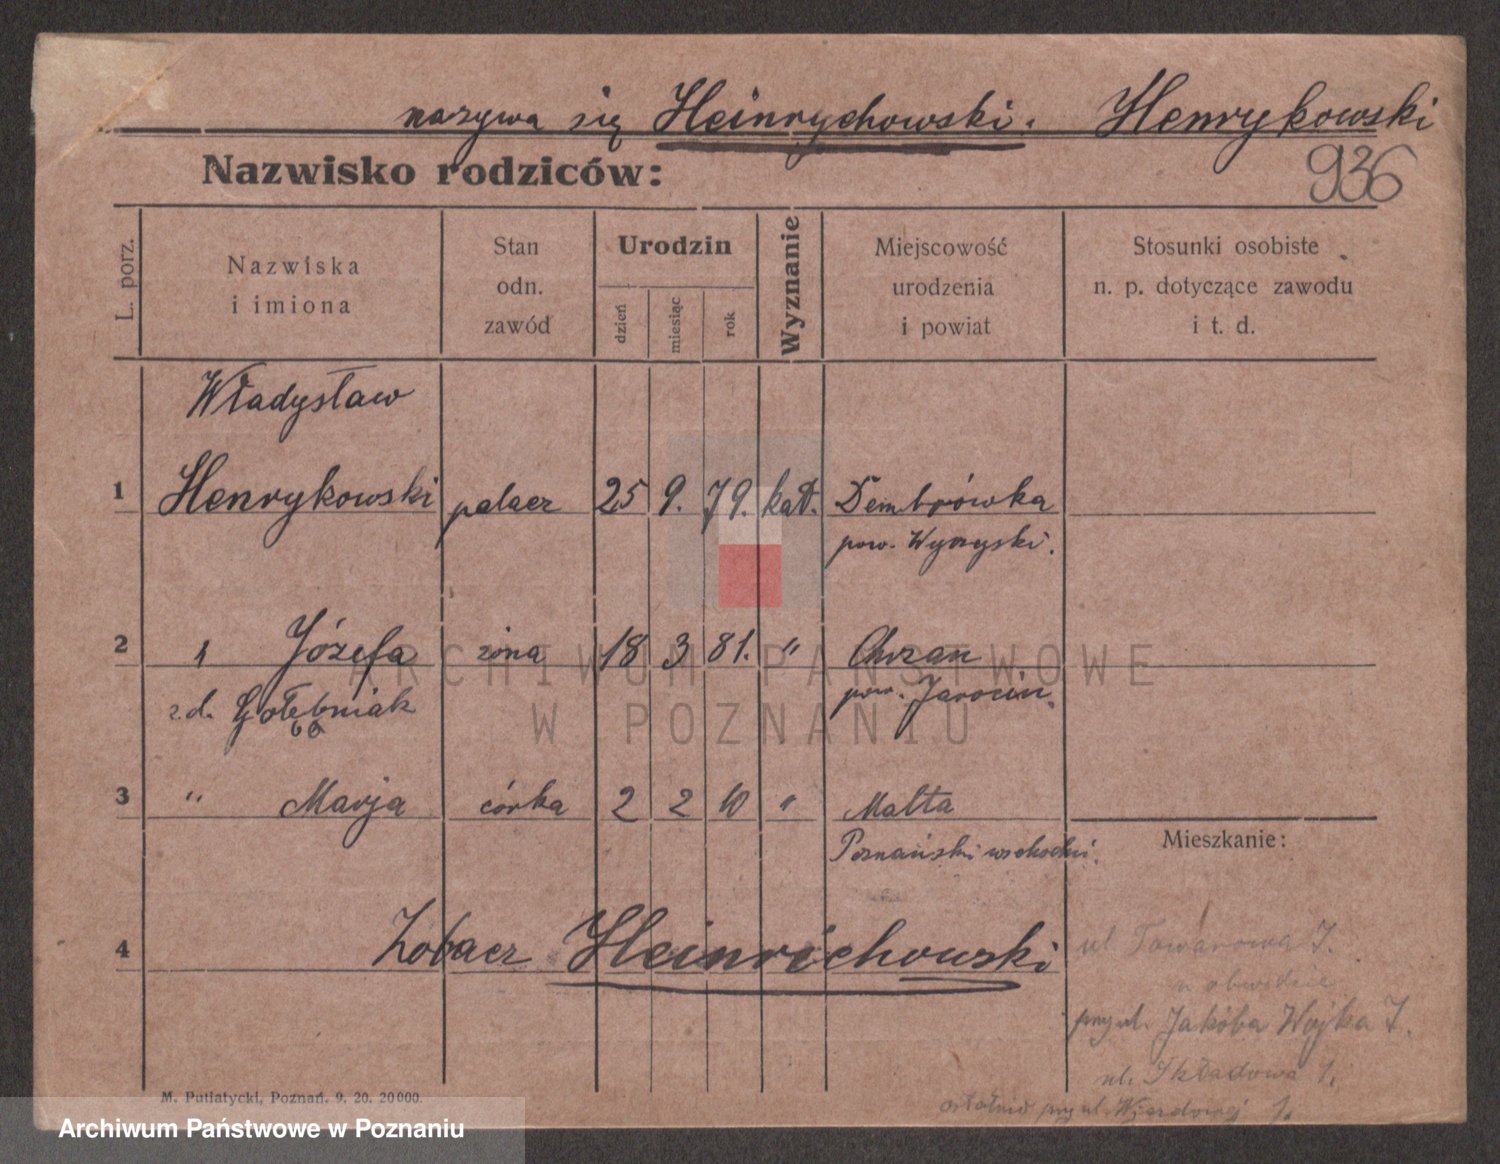 nazywa się Heinrychowski. Henrykowski
Nazwisko rodziców:
936
L. porz.
Nazwiska
i imiona
Stan
odn.
zawód
Urodzin
dzień
miesiąc
rok
Wyznanie
Miejscowość
urodzenia
i powiat
Stosunki osobiste
n. p. dotyczące zawodu
i t. d.
Władysław
1 Henrykowski palacz 25 9. 79. kat. Dembrówka
pow. Wyrzyski.
2 " Józefa żona 18 3 81. " Chrzan
z.d. Gołębniak pow. Jarocin.
3 " Marja córka 2 2 10 " Malta
Poznański wschodni.
Mieszkanie:
4 Zobacz Heinrichowski
ul Towarowa
przy ul. Jakóba Wujka 7.
ul. Składowa 1.
ostatnio przy ul. Wjazdowej 1.
M. Putiatycki, Poznań. 9. 20. 20000.
ARCHIWUM PAŃSTWOWE
W POZNANIU
Archiwum Państwowe w Poznaniu